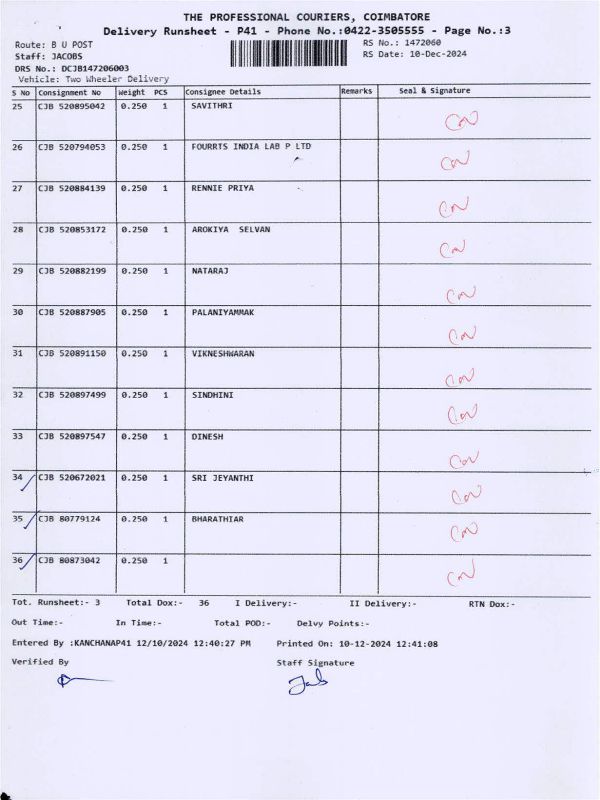 THE PROFESSIONAL COURIERS, COIMBATORE
Delivery Runsheet - P41 - Phone No.:0422-3505555 - Page No.:3
Route: B U POST RS No.: 1472060
Staff: JACOBS RS Date: 10-Dec-2024
DRS No.: DCJB147206003
Vehicle: Two Wheeler Delivery
S No Consignment No Weight PCS Consignee Details Remarks Seal & Signature
25 CJB 520895042 0.250 1 SAVITHRI
26 CJB 520794053 0.250 1 FOURRTS INDIA LAB P LTD
27 CJB 520884139 0.250 1 RENNIE PRIYA
28 CJB 520853172 0.250 1 AROKIYA SELVAN
29 CJB 520882199 0.250 1 NATARAJ
30 CJB 520887905 0.250 1 PALANIYAMMAK
31 CJB 520891150 0.250 1 VIKNESHWARAN
32 CJB 520897499 0.250 1 SINDHINI
33 CJB 520897547 0.250 1 DINESH
34 CJB 520672021 0.250 1 SRI JEYANTHI
35 CJB 80779124 0.250 1 BHARATHIAR
36 CJB 80873042 0.250 1
Tot. Runsheet:- 3 Total Dox:- 36 I Delivery:- II Delivery:- RTN Dox:-
Out Time:- In Time:- Total POD:- Delvy Points:-
Entered By :KANCHANAP41 12/10/2024 12:40:27 PM Printed On: 10-12-2024 12:41:08
Verified By Staff Signature